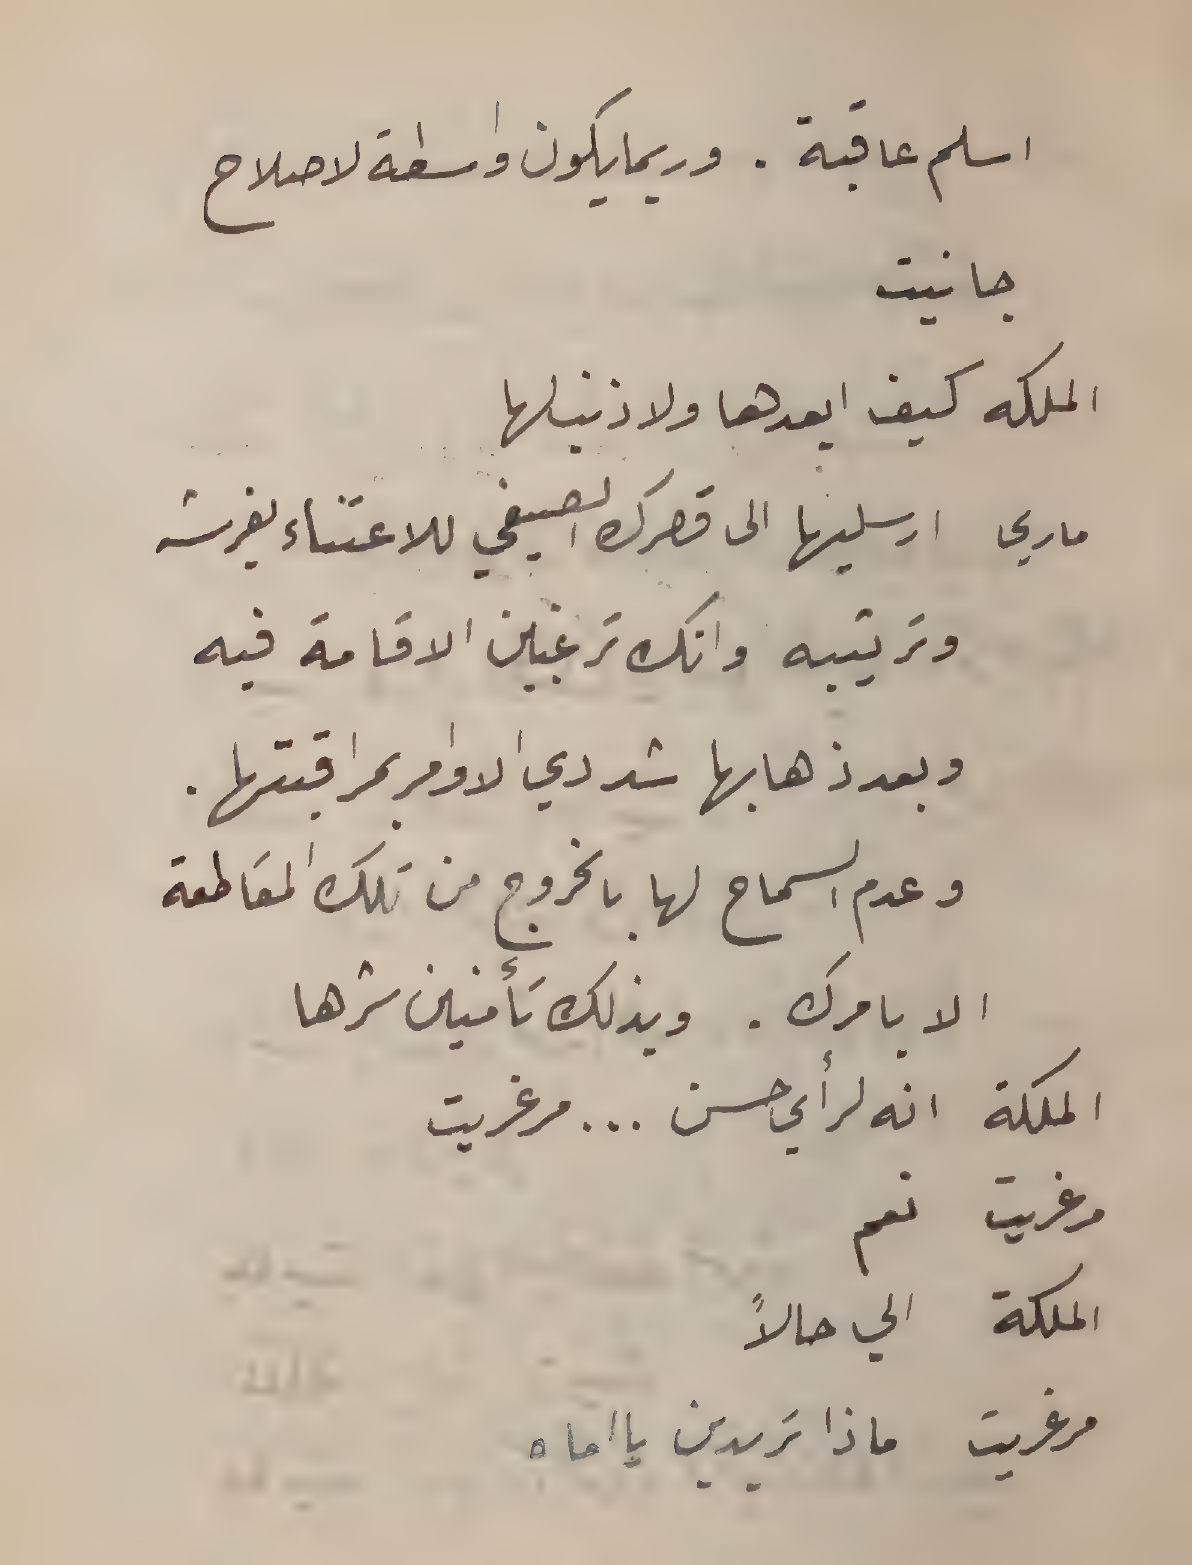 اسلم عاقبة . وربما يكون واسطة لاصلاح
جانيت
الملكه كيف ابعدها ولا ذنب لها
ماري ارسليها الى قصرك الصيفي للاعتناء بفرشه
وترتيبه وانك ترغبين الاقامة فيه
وبعد ذهابها شددي الاوامر بمراقبتها .
وعدم السماح لها بالخروج من تلك المقاطعة
الا بامرك . وبذلك تأمنين شرها
الملكة انه لرأي حسن ... مرغريت
مرغريت نعم
الملكة الي حالاً
مرغريت ماذا تريدين يا اماه